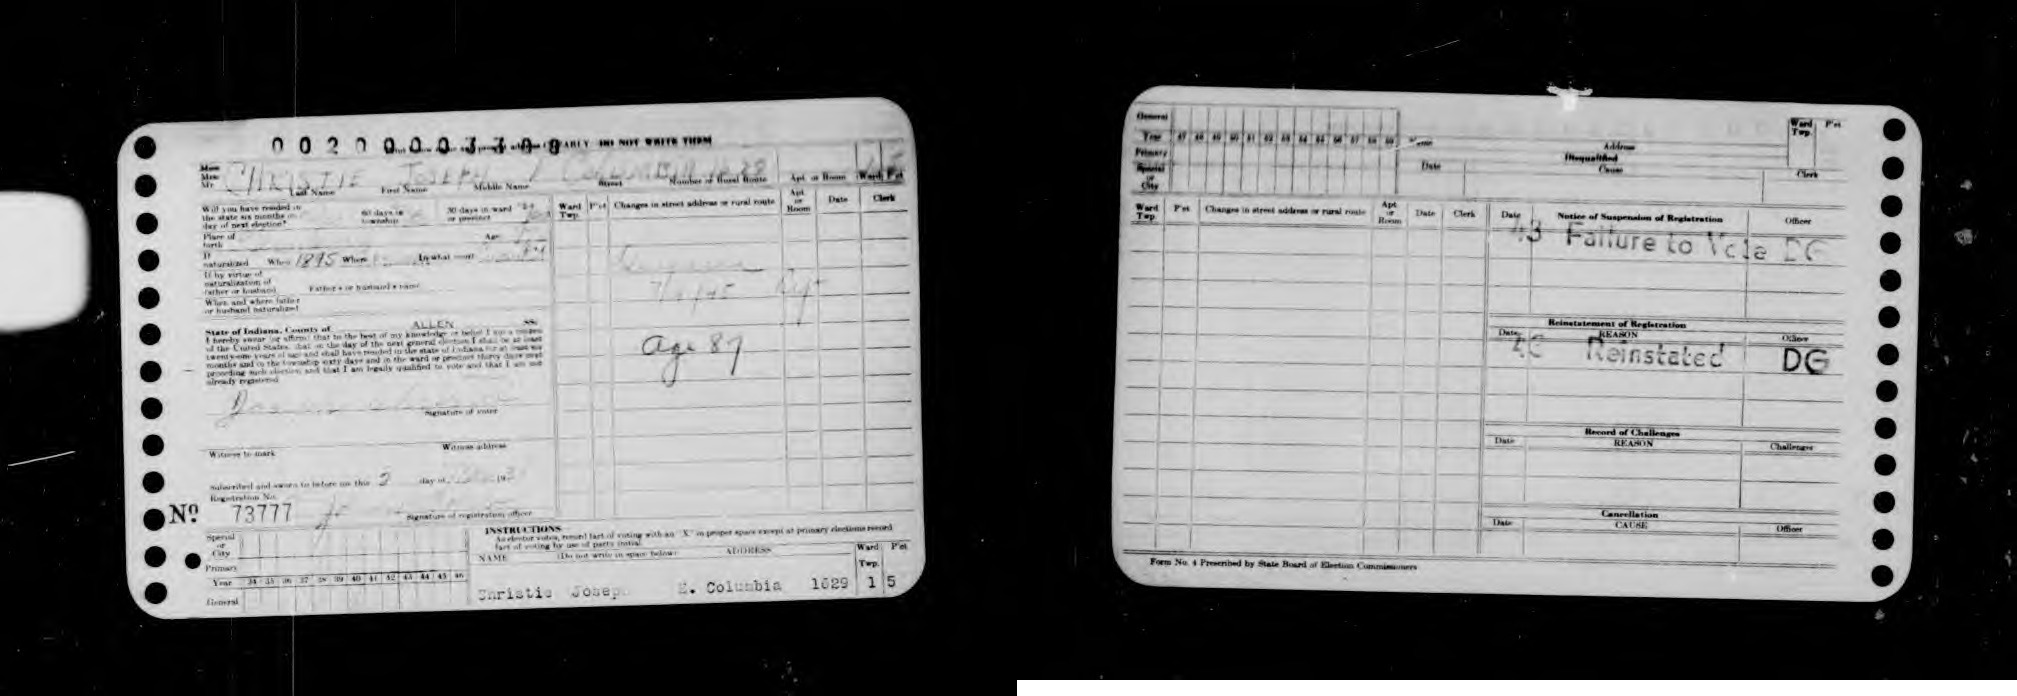 DO NOT WRITE THEM
CHRISTIE JOSEPH
Last Name First Name Middle Name Street Number or Rural Route Apt. or Room Ward Pct
Will you have resided in
the state six months on
day of next election? 60 days in
township 30 days in ward
or precinct
Place of
birth Age
If
naturalized When 1895 Where By what court
If by virtue of
naturalization of
father or husband Father's or husband's name
When and where father
or husband naturalized
State of Indiana, County of ALLEN SS:
I hereby swear (or affirm) that to the best of my knowledge or belief I am a citizen
of the United States, that on the day of the next general election I shall be at least
twenty-one years of age and shall have resided in the state of Indiana for at least six
months and in the township sixty days and in the ward or precinct thirty days next
preceding such election and that I am legally qualified to vote and that I am not
already registered
Signature of voter
Witness to mark Witness address
Subscribed and sworn to before me this 2 day of 193
Registration No.
No 73777
Signature of registration officer
Special
or
City
Primary
Year 34 35 36 37 38 39 40 41 42 43 44 45 46
General
Ward
Twp. P'ct Changes in street address or rural route Apt.
or
Room Date Clerk
Age 87
INSTRUCTIONS
As elector votes, record fact of voting with an "X" in proper space except at primary elections record
fact of voting by use of party initial.
NAME (Do not write in space below) ADDRESS Ward
Twp. P'ct
Christie Joseph E. Columbia 1629 1 5
General
Year 47 48 49 50 51 52 53 54 55 56 57 58 59
Primary
Special
or
City
Name Address Ward
Twp. P'ct
Disqualified
Date Cause Clerk
Ward
Twp. P'ct Changes in street address or rural route Apt
or
Room Date Clerk
Date Notice of Suspension of Registration Officer
43 Failure to Vote DG
Reinstatement of Registration
Date REASON Officer
Reinstated DG
Record of Challenges
Date REASON Challenger
Cancellation
Date CAUSE Officer
Form No. 4 Prescribed by State Board of Election Commissioners